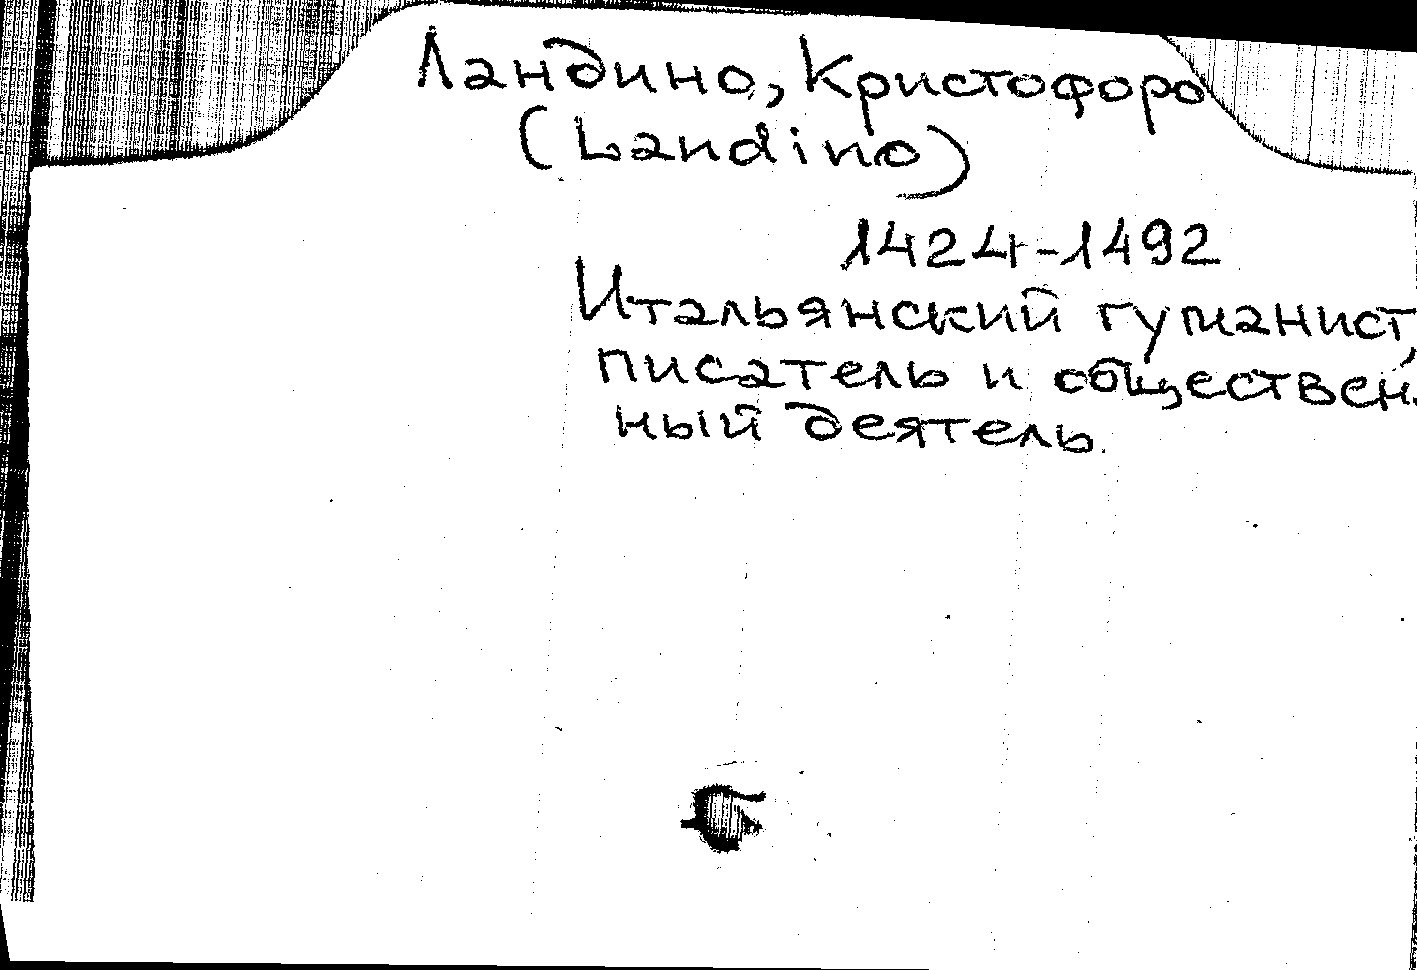 Ландино, Кристофоро
(Landino)
1424-1492
Итальянский гуманист,
писатель и обществен-
ный деятель.